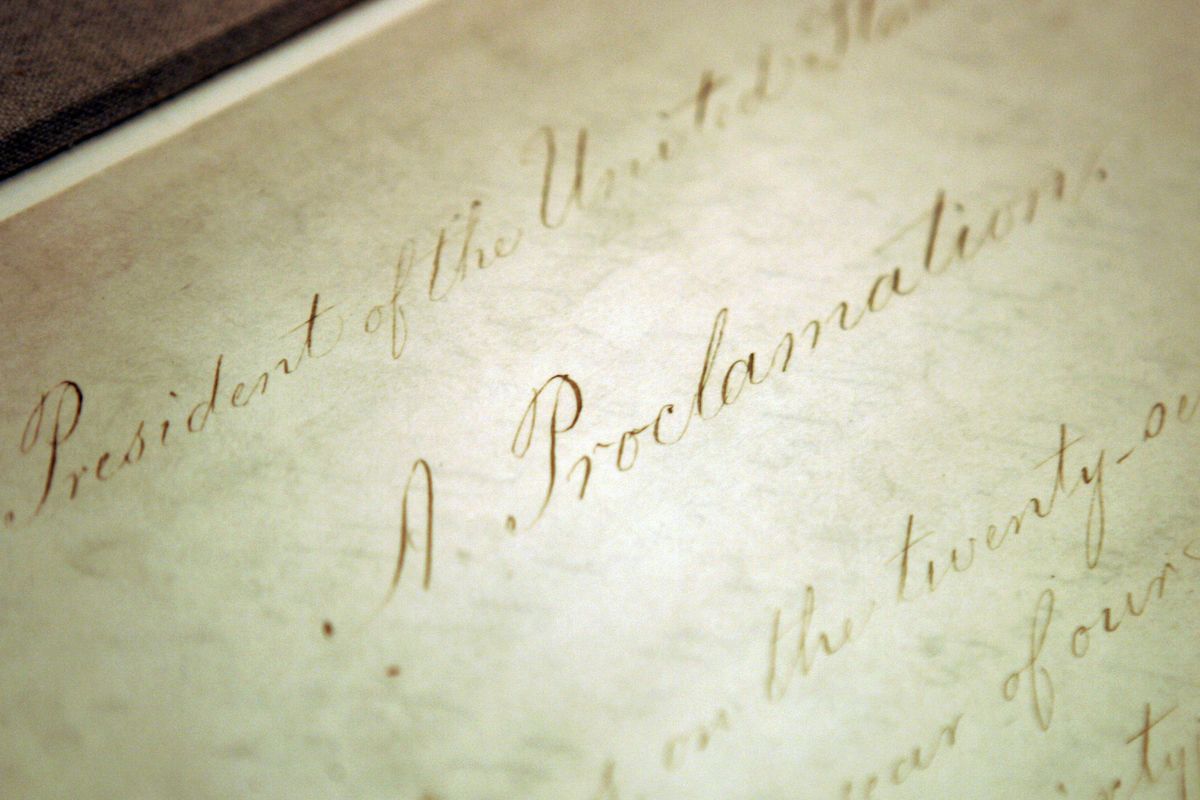 President of the United
A Proclamation.
on the twenty-
of our